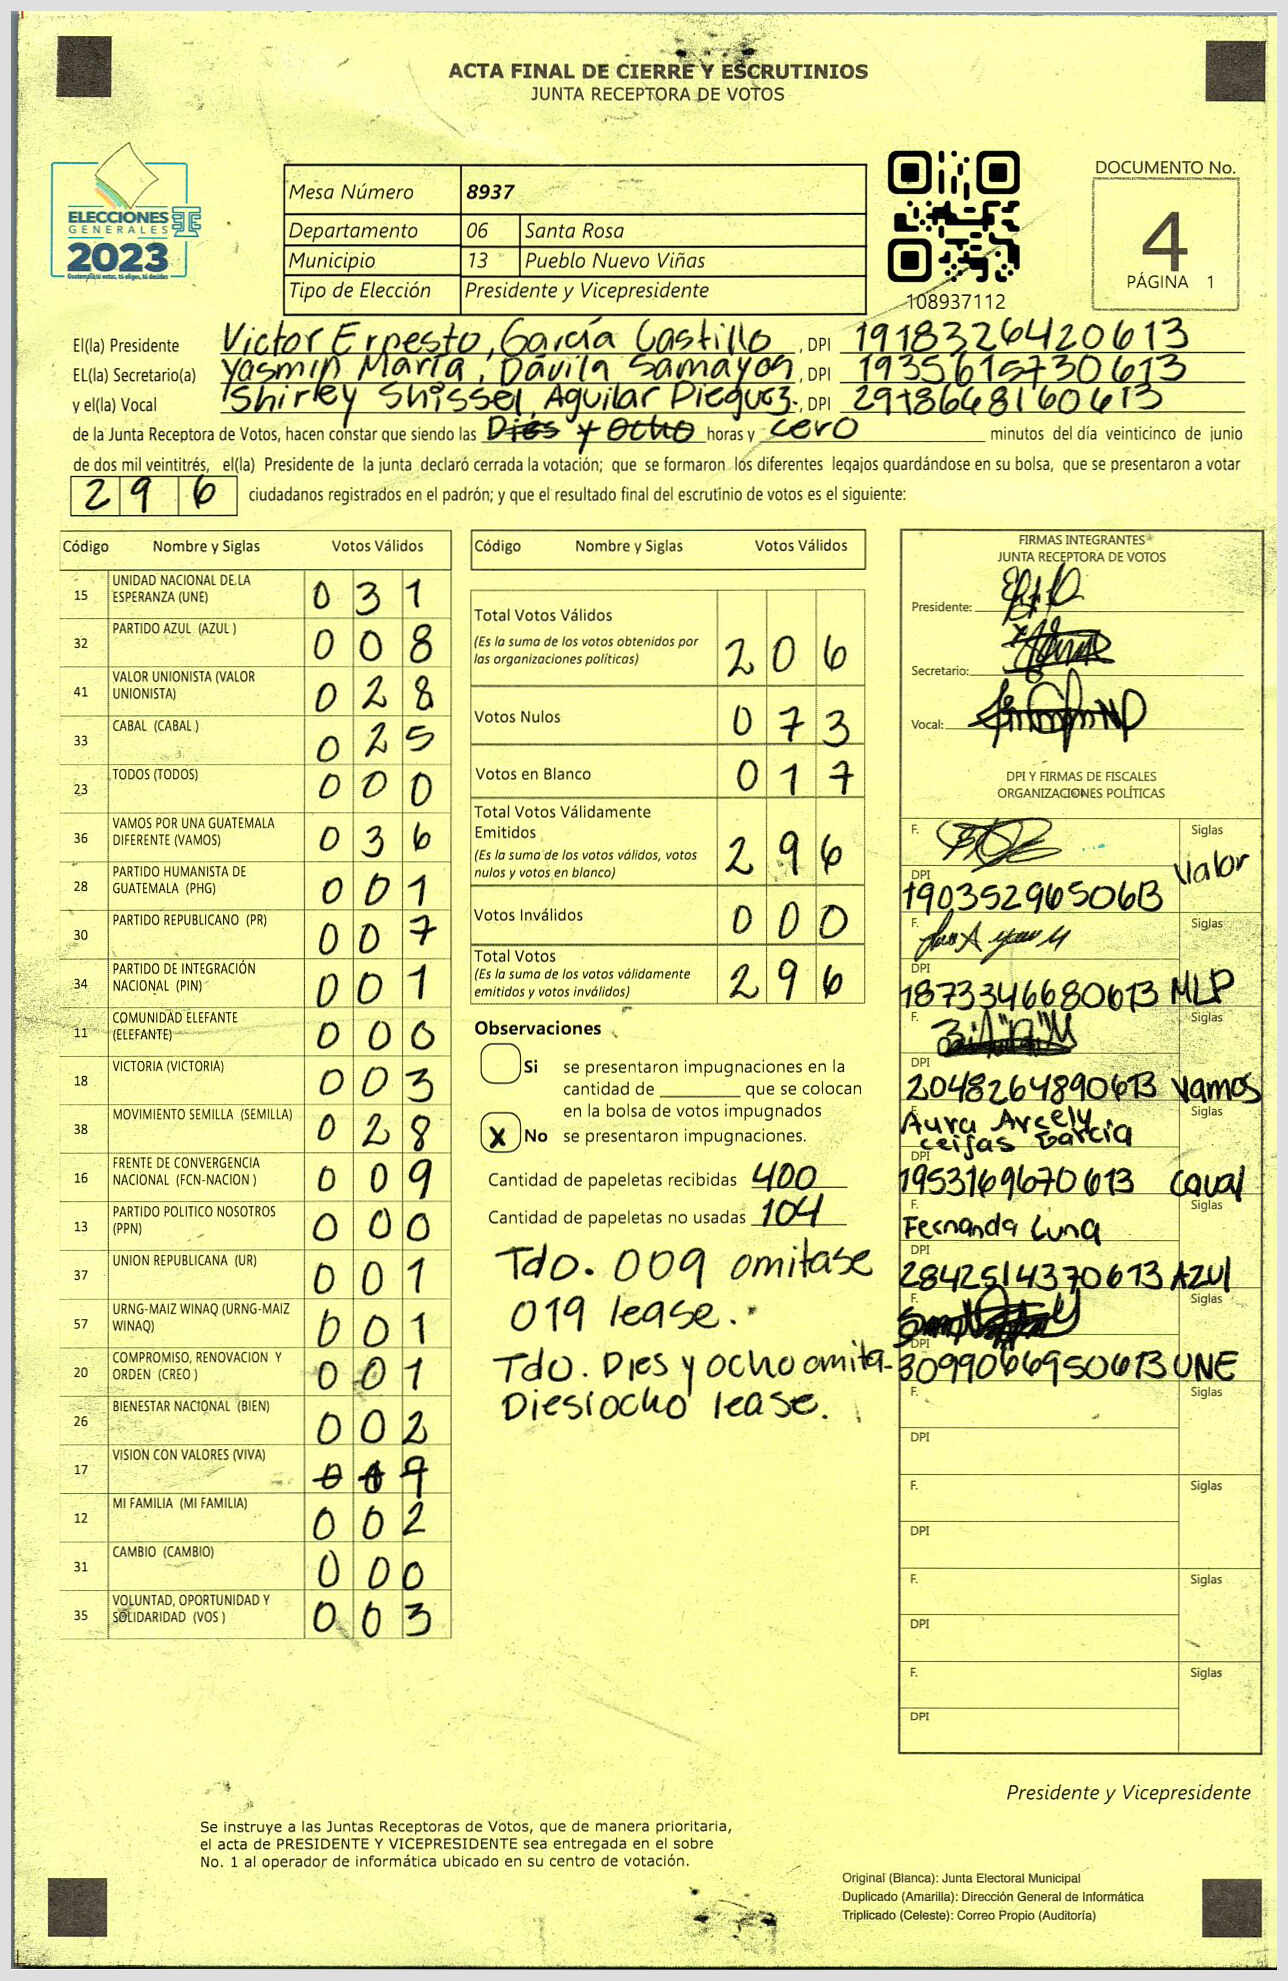 ACTA FINAL DE CIERRE Y ESCRUTINIOS
JUNTA RECEPTORA DE VOTOS
ELECCIONES
GENERALES
2023
Mesa Número 8937
Departamento 06 Santa Rosa
Municipio 13 Pueblo Nuevo Viñas
Tipo de Elección Presidente y Vicepresidente
108937112
DOCUMENTO No.
4
PÁGINA 1
El(la) Presidente Victor Ernesto, García Castillo, DPI 1918326420613
EL(la) Secretario(a) Yasmin María, Dávila Samayoa, DPI 1935615730613
y el(la) Vocal Shirley Shissel, Aguilar Dieguez., DPI 2918668160613
de la Junta Receptora de Votos, hacen constar que siendo las Dies y Ocho horas y cero minutos del día veinticinco de junio
de dos mil veintitrés, el(la) Presidente de la junta declaró cerrada la votación; que se formaron los diferentes legajos guardándose en su bolsa, que se presentaron a votar
296 ciudadanos registrados en el padrón; y que el resultado final del escrutinio de votos es el siguiente:
Código Nombre y Siglas Votos Válidos
15 UNIDAD NACIONAL DE LA ESPERANZA (UNE) 031
32 PARTIDO AZUL (AZUL ) 008
41 VALOR UNIONISTA (VALOR UNIONISTA) 028
33 CABAL (CABAL ) 025
23 TODOS (TODOS) 000
36 VAMOS POR UNA GUATEMALA DIFERENTE (VAMOS) 036
28 PARTIDO HUMANISTA DE GUATEMALA (PHG) 001
30 PARTIDO REPUBLICANO (PR) 007
34 PARTIDO DE INTEGRACIÓN NACIONAL (PIN) 001
11 COMUNIDAD ELEFANTE (ELEFANTE) 000
18 VICTORIA (VICTORIA) 003
38 MOVIMIENTO SEMILLA (SEMILLA) 028
16 FRENTE DE CONVERGENCIA NACIONAL (FCN-NACION ) 009
13 PARTIDO POLITICO NOSOTROS (PPN) 000
37 UNION REPUBLICANA (UR) 001
57 URNG-MAIZ WINAQ (URNG-MAIZ WINAQ) 001
20 COMPROMISO, RENOVACION Y ORDEN (CREO ) 001
26 BIENESTAR NACIONAL (BIEN) 002
17 VISION CON VALORES (VIVA)
12 MI FAMILIA (MI FAMILIA) 002
31 CAMBIO (CAMBIO) 000
35 VOLUNTAD, OPORTUNIDAD Y SOLIDARIDAD (VOS ) 003
Código Nombre y Siglas Votos Válidos
Total Votos Válidos 206
(Es la suma de los votos obtenidos por
las organizaciones políticas)
Votos Nulos 073
Votos en Blanco 017
Total Votos Válidamente
Emitidos 296
(Es la suma de los votos válidos, votos
nulos y votos en blanco)
Votos Inválidos 000
Total Votos 296
(Es la suma de los votos válidamente
emitidos y votos inválidos)
Observaciones
Si se presentaron impugnaciones en la
cantidad de ________ que se colocan
en la bolsa de votos impugnados
X No se presentaron impugnaciones.
Cantidad de papeletas recibidas 400
Cantidad de papeletas no usadas 104
Tdo. 009 omitase
019 lease.
Tdo. Dies y ocho omita-
Diesiocho lease.
FIRMAS INTEGRANTES
JUNTA RECEPTORA DE VOTOS
Presidente:
Secretario:
Vocal:
DPI Y FIRMAS DE FISCALES
ORGANIZACIONES POLÍTICAS
F. Siglas
Valor
DPI
1903529650613
F. Siglas
DPI
1873346680613 MLP
F. Siglas
DPI
2048264890613 Vamos
F. Siglas
Aura Arcely
Ceijas Garcia
DPI
1953169670613 Caval
F. Siglas
Fernanda Luna
DPI
2842514370613 AZUl
F. Siglas
DPI
3099066950613 UNE
F. Siglas
DPI
F. Siglas
DPI
F. Siglas
DPI
F. Siglas
DPI
Presidente y Vicepresidente
Se instruye a las Juntas Receptoras de Votos, que de manera prioritaria,
el acta de PRESIDENTE Y VICEPRESIDENTE sea entregada en el sobre
No. 1 al operador de informática ubicado en su centro de votación.
Original (Blanca): Junta Electoral Municipal
Duplicado (Amarilla): Dirección General de Informática
Triplicado (Celeste): Correo Propio (Auditoría)